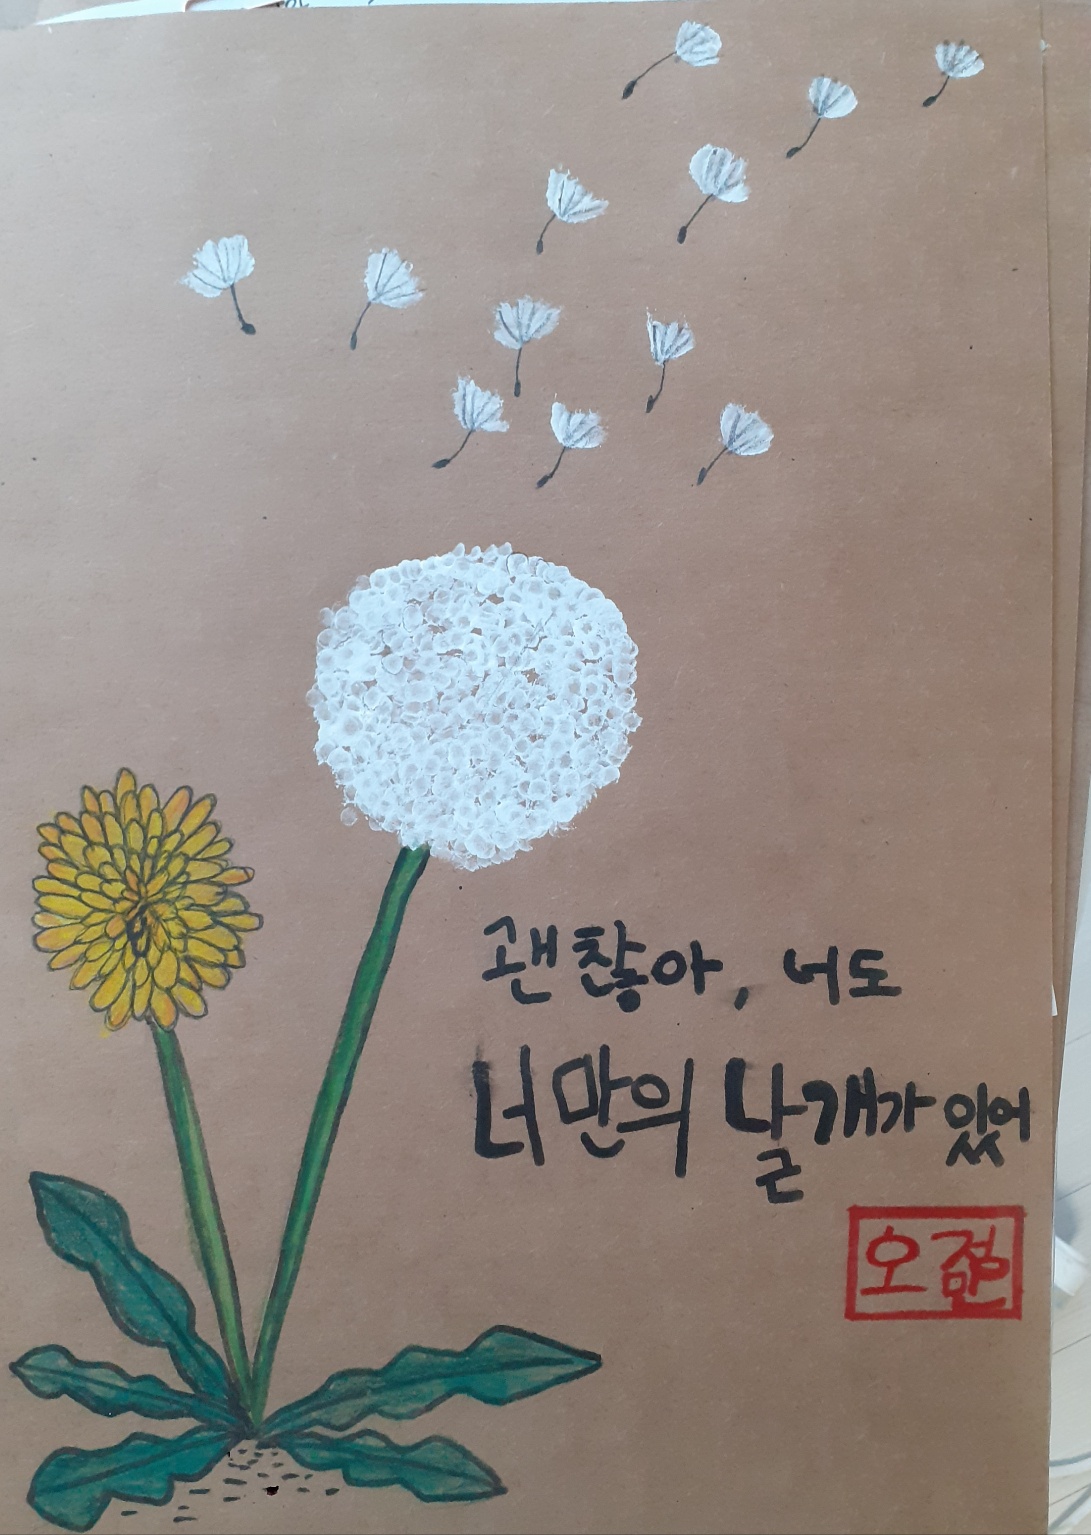 괜찮아, 너도
너만의 날개가 있어